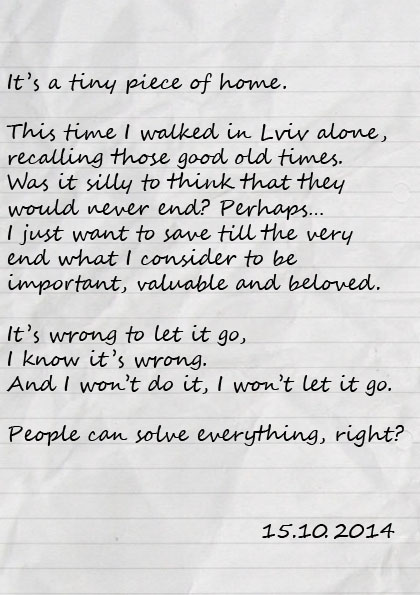 It's a tiny piece of home.
This time I walked in Lviv alone,
recalling those good old times.
Was it silly to think that they
would never end? Perhaps...
I just want to save till the very
end what I consider to be
important, valuable and beloved.
It's wrong to let it go,
I know it's wrong.
And I won't do it, I won't let it go.
People can solve everything, right?
15.10.2014